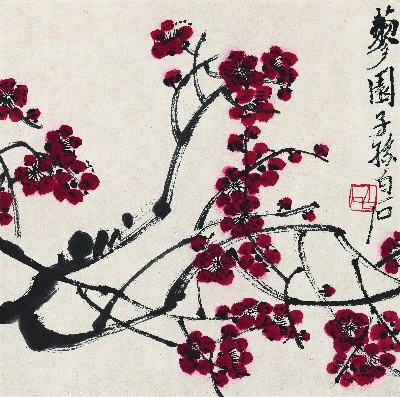 園子孫白石